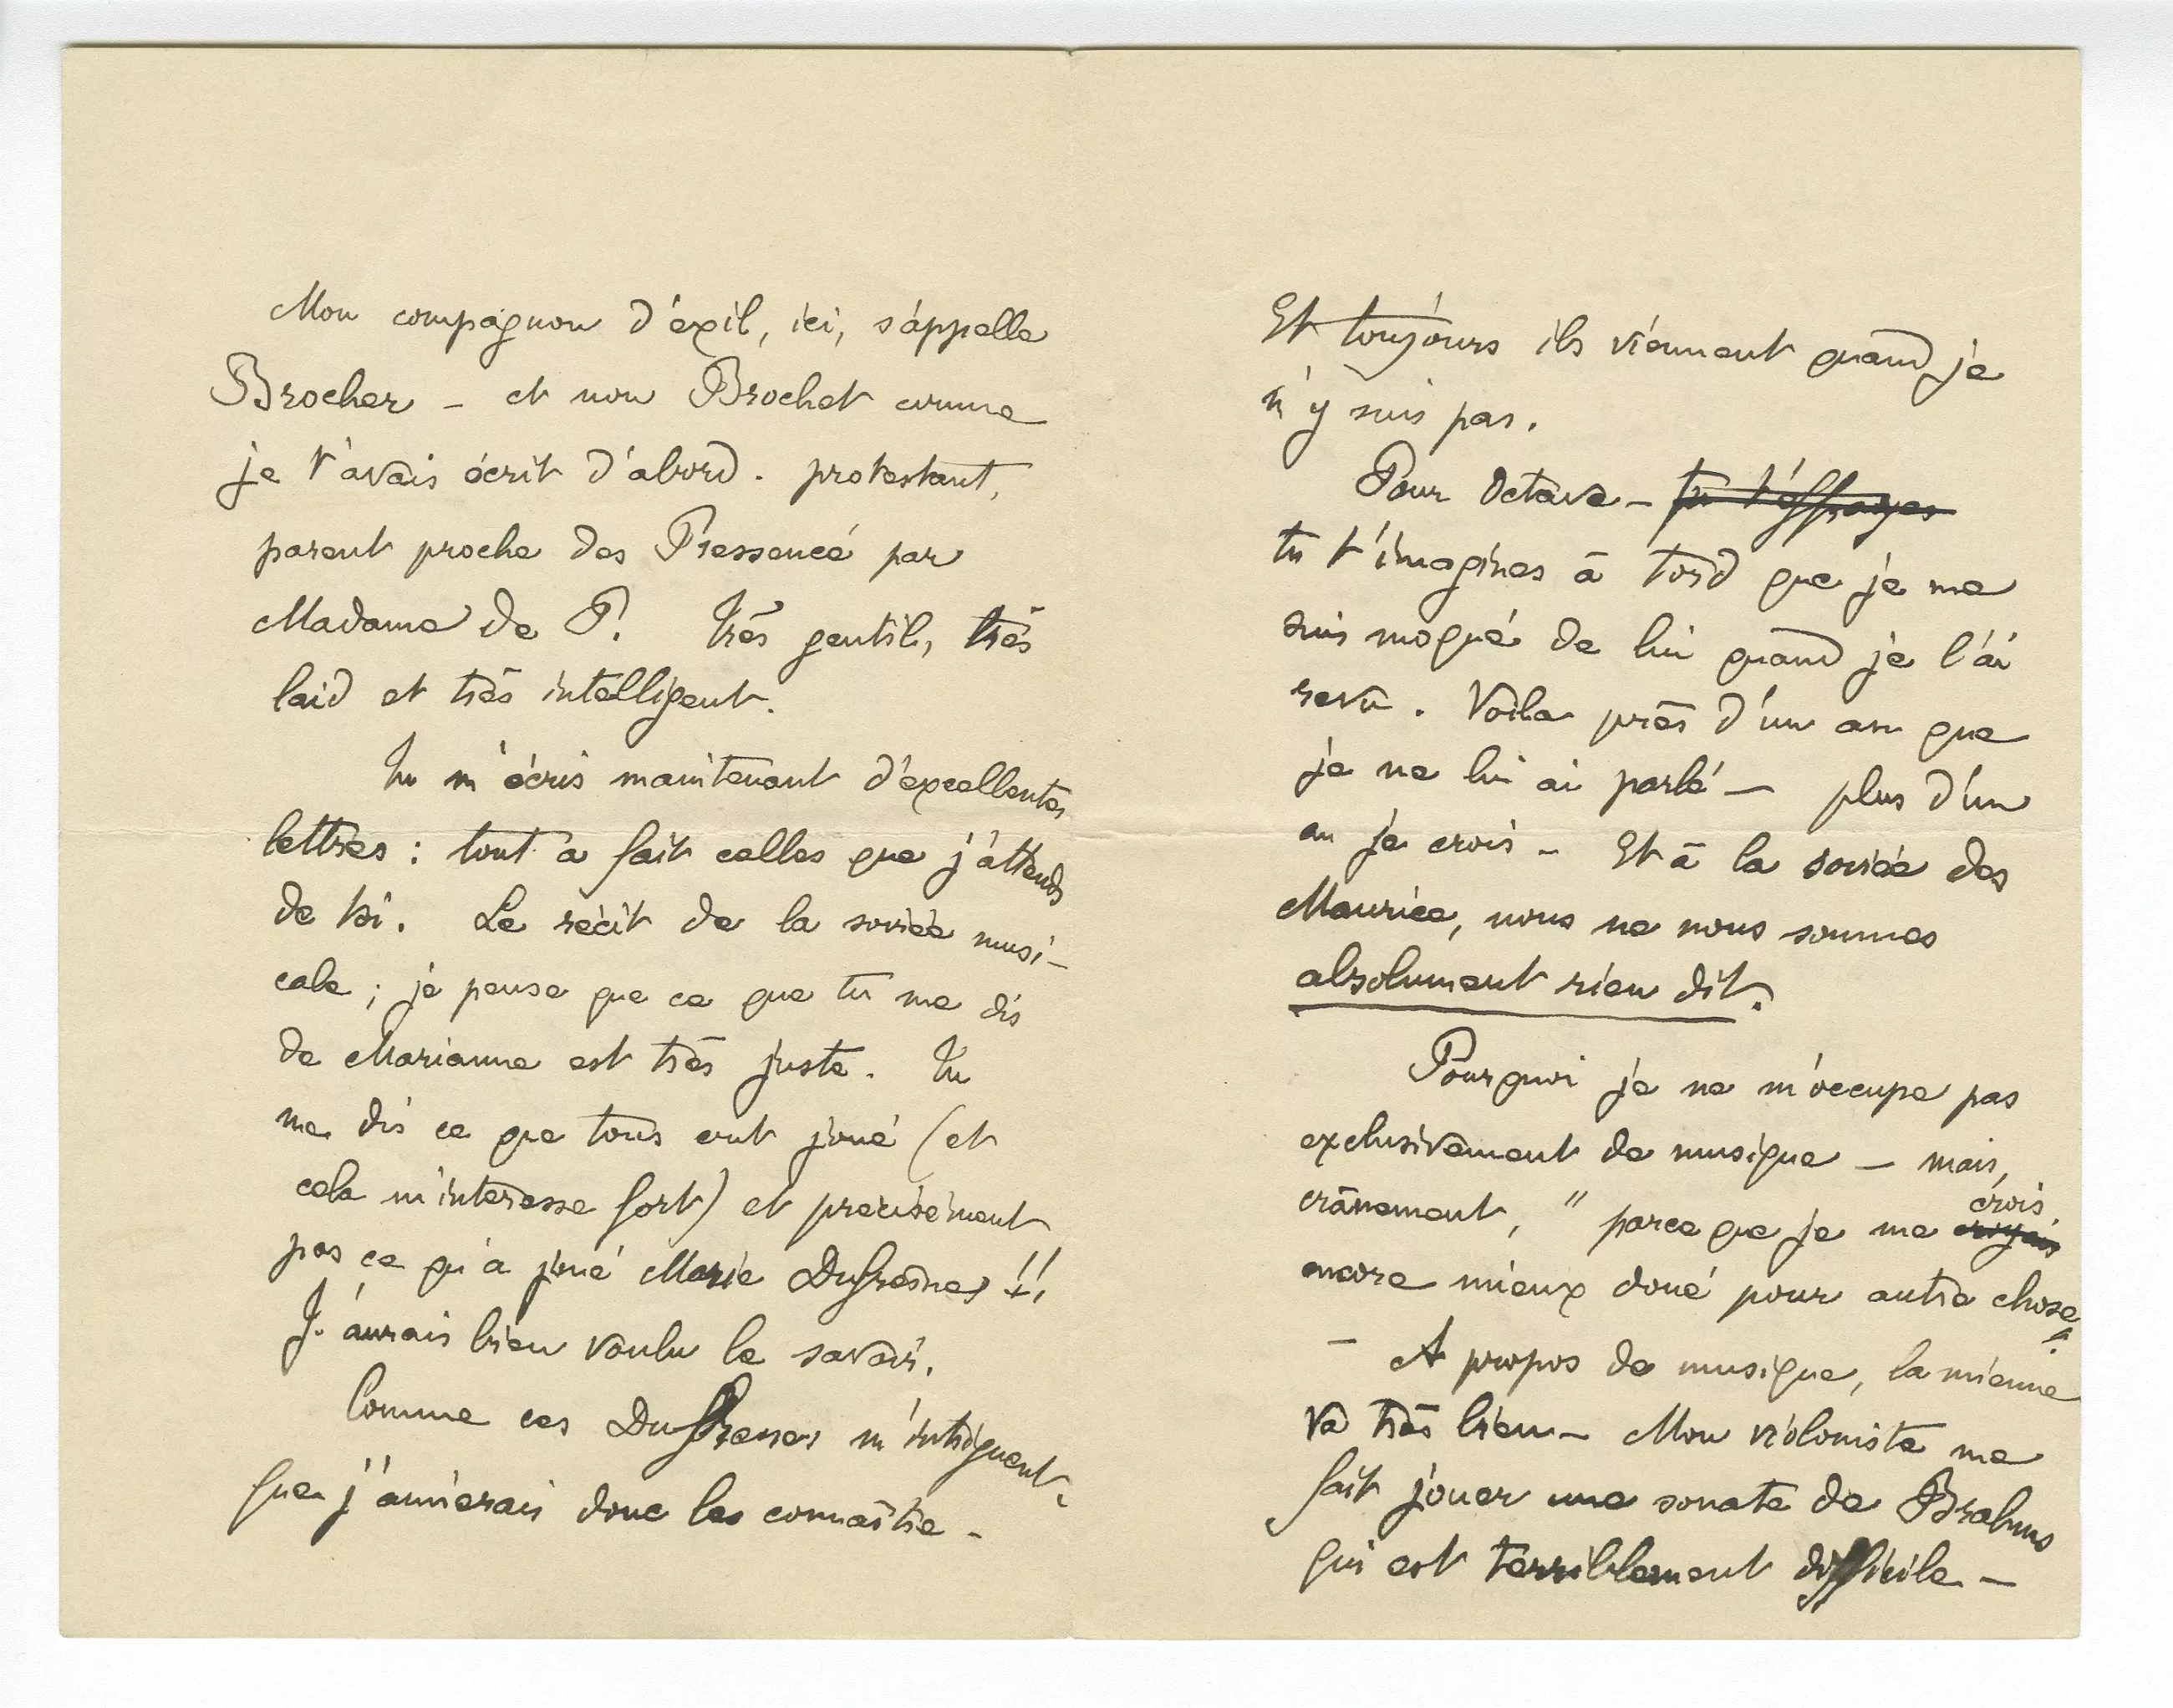 Mon compagnon d'éxil, ici, s'appelle
Brocher – et non Brochet comme
je t'avais écrit d'abord. protestant,
parent proche des Pressencé par
Madame de P. très gentil, très
laid et très intelligent.
Tu m'écris maintenant d'éxcellentes
lettres : tout a fait celles que j'attends
de toi. Le récit de la soirée musi-
cale ; je pense que ce que tu me dis
de Marianne est très juste. Tu
me dis ce que tous ont joué (et
cela m'intéresse fort) et précisément
pas ce qu'a joué Marie Dufresnes !!
J'aurais bien voulu le savoir.
Comme ces Dufresnes m'intriguent.
que j'aimerais donc les connaître –
Et toujours ils viennent quand je
n'y suis pas.
Pour Octave – tu t'effrayes
tu t'imagines à tord que je me
suis moqué de lui quand je l'ai
revu. Voila près d'un an que
je ne lui ai parlé – plus d'un
an je crois – Et à la soirée des
Maurice, nous ne nous sommes
absolument rien dit.
Pourquoi je ne m'occupe pas
exclusivement de musique – mais,
crânement, " parce que je me croyais crois
encore mieux doué pour autre chose".
– A propos de musique, la mienne
va très bien – Mon violoniste me
fait jouer une sonate de Brahms
qui est terriblement difficile –